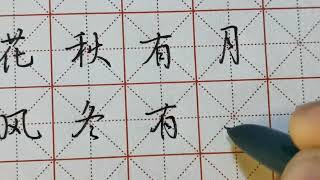 花秋有月
风冬有